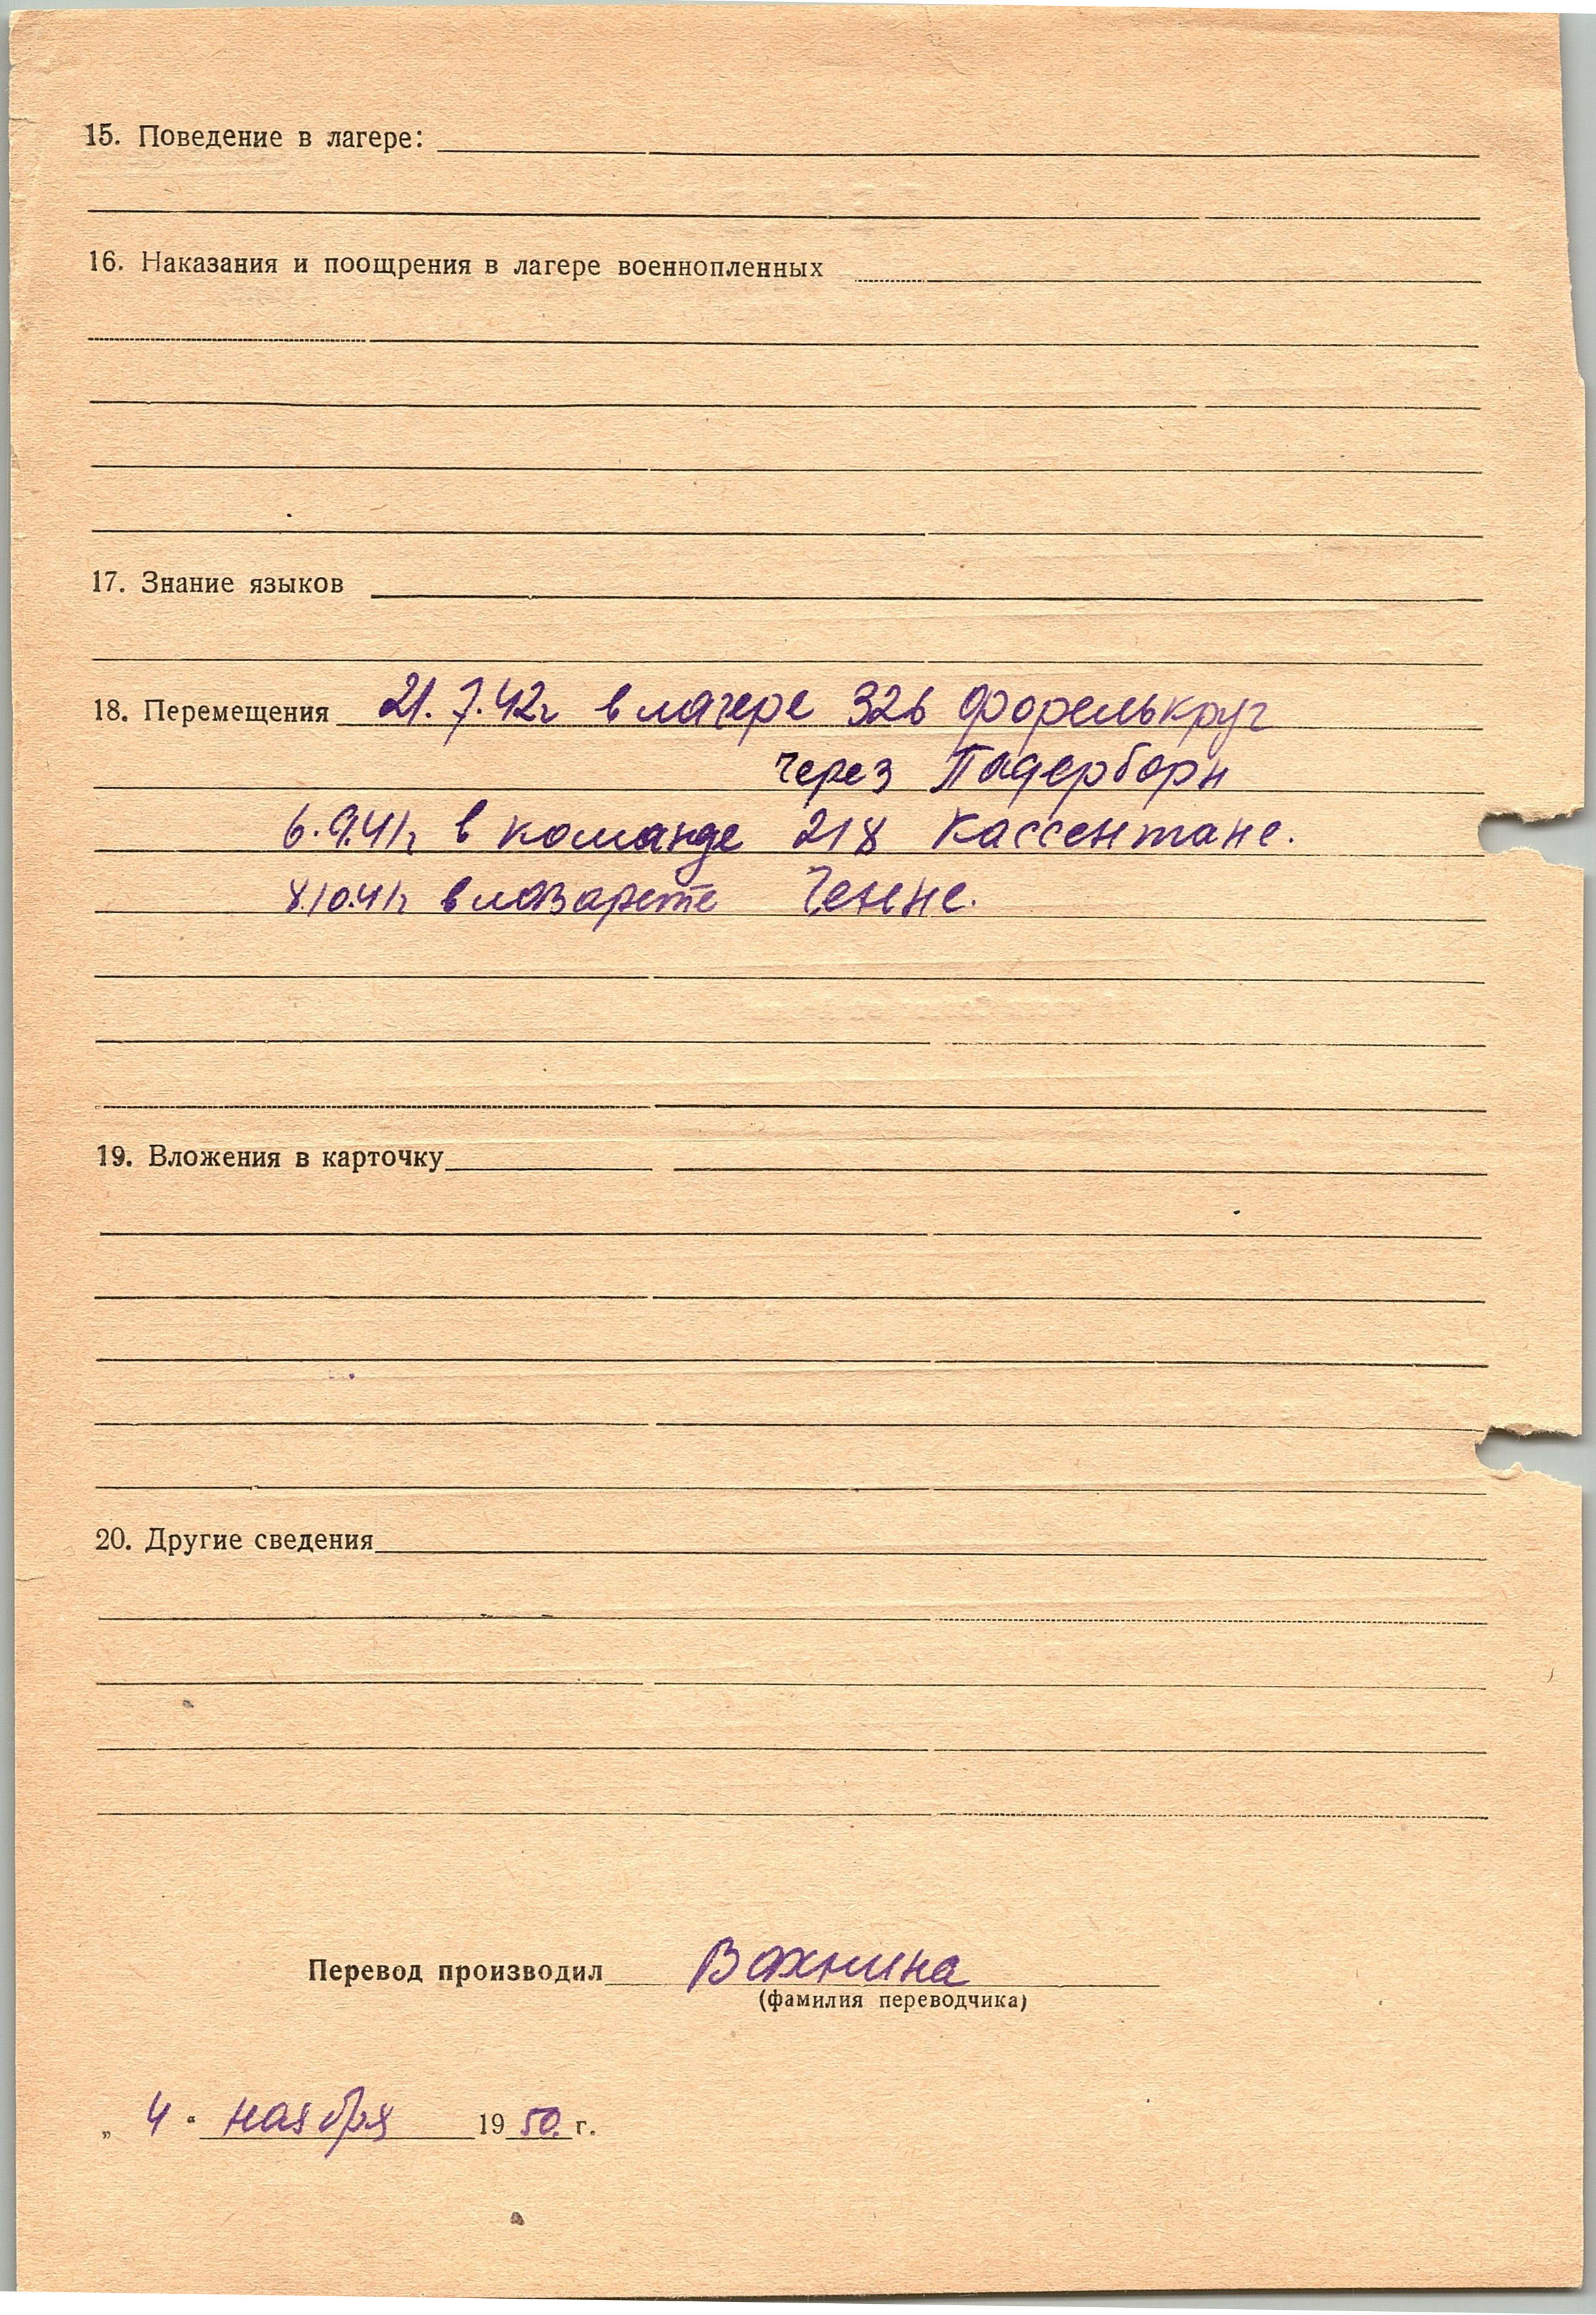 15. Поведение в лагере:
16. Наказания и поощрения в лагере военнопленных
17. Знание языков
18. Перемещения 21.7.42г в лагере 326 Форелькруг
через Падерборн
6.9.41г в команде 218 Кассентане.
8.10.41г в лазарете Генне.
19. Вложения в карточку
20. Другие сведения
Перевод производил Вахнина
(фамилия переводчика)
„ 4 " ноября 1950. г.